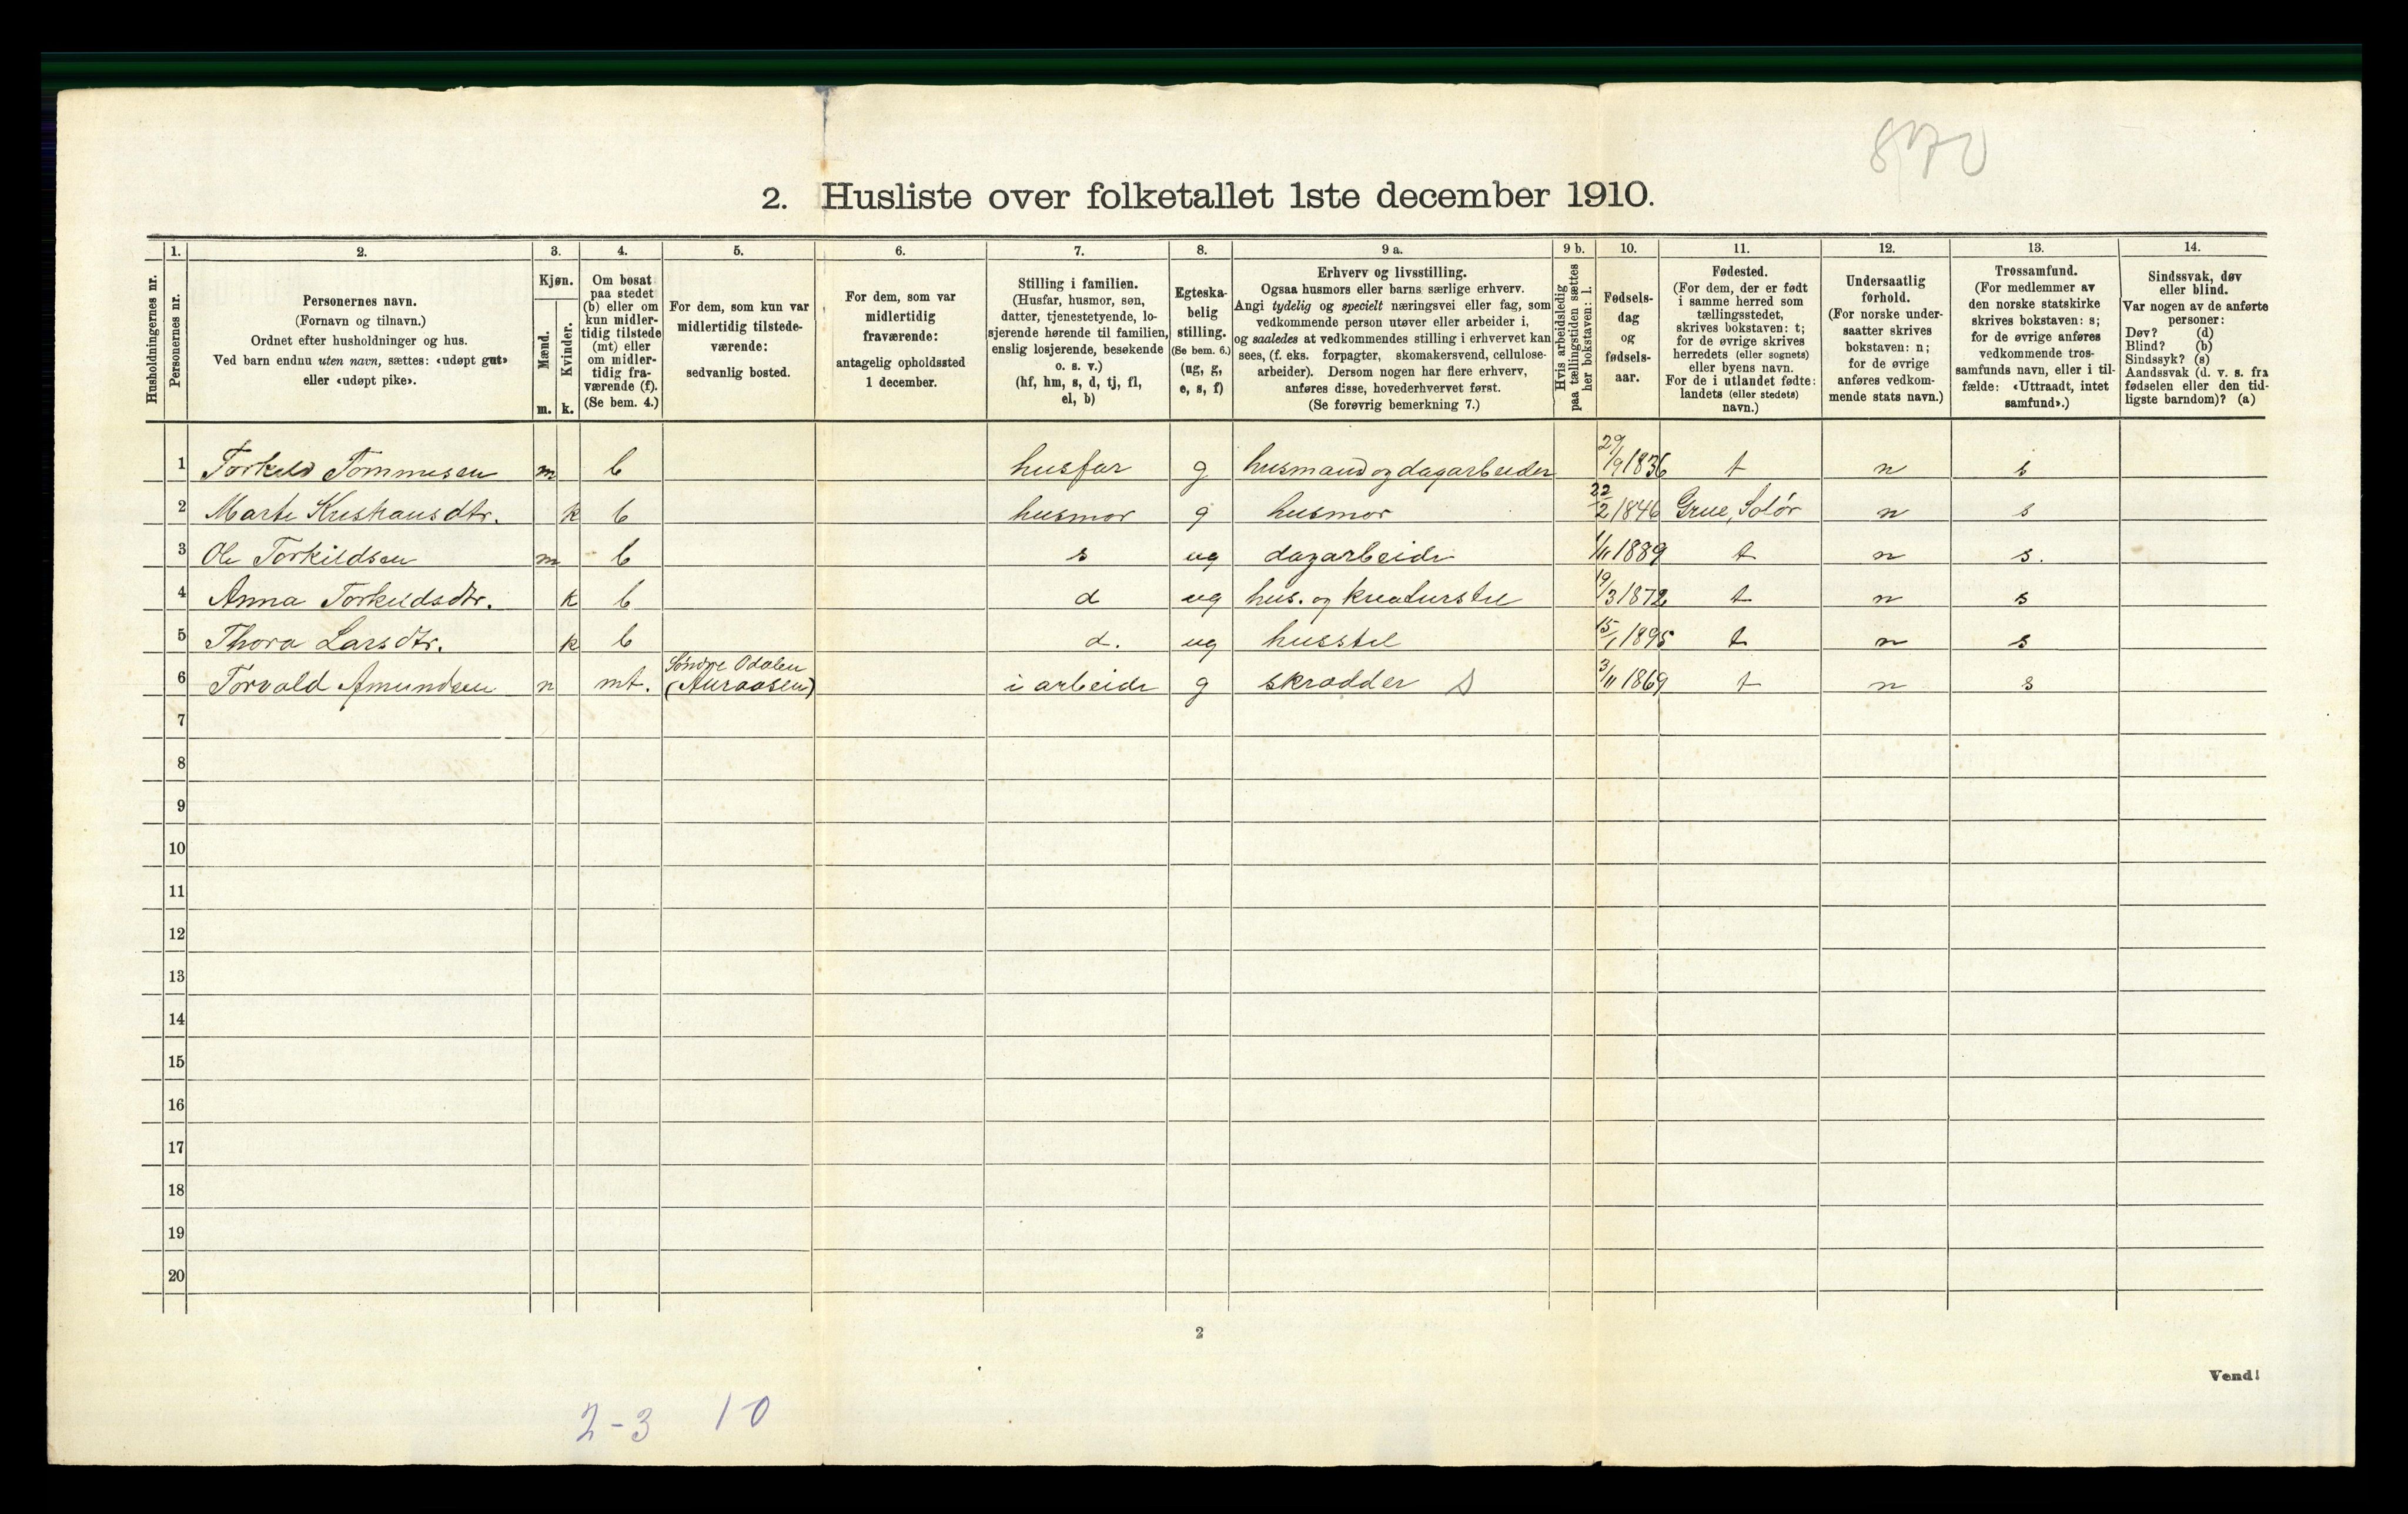 870
2. Husliste over folketallet 1ste december 1910.
1. 2. 3. 4. 5. 6. 7. 8. 9 a. 9 b. 10. 11. 12. 13. 14.
Husholdningernes nr.
Personernes nr.
Personernes navn.
(Fornavn og tilnavn.)
Ordnet efter husholdninger og hus.
Ved barn endnu uten navn, sættes: «udøpt gut»
eller «udøpt pike».
Kjøn.
Mænd.
Kvinder.
m. k.
Om bosat
paa stedet
(b) eller om
kun midler-
tidig tilstede
(mt) eller
om midler-
tidig fra-
værende (f).
(Se bem. 4.)
For dem, som kun var
midlertidig tilstede-
værende:
sedvanlig bosted.
For dem, som var
midlertidig
fraværende:
antagelig opholdssted
1 december.
Stilling i familien.
(Husfar, husmor, søn,
datter, tjenestetyende, lo-
sjerende hørende til familien,
enslig losjerende, besøkende
o. s. v.)
(hf, hm, s, d, tj, fl,
el, b)
Egteska-
belig
stilling.
(Se bem. 6.)
(ug, g,
e, s, f)
Erhverv og livsstilling.
Ogsaa husmors eller barns særlige erhverv.
Angi tydelig og specielt næringsvei eller fag, som
vedkommende person utøver eller arbeider i,
og saaledes at vedkommendes stilling i erhvervet kan
sees, (f. eks. forpagter, skomakersvend, cellulose-
arbeider). Dersom nogen har flere erhverv,
anføres disse, hovederhvervet først.
(Se forøvrig bemerkning 7.)
Hvis arbeidsledig
paa tællingstiden sættes
her bokstaven: l.
Fødsels-
dag
og
fødsels-
aar.
Fødested.
(For dem, der er født
i samme herred som
tællingsstedet,
skrives bokstaven: t;
for de øvrige skrives
herredets (eller sognets)
eller byens navn.
For de i utlandet fødte:
landets (eller stedets)
navn.)
Undersaatlig
forhold.
(For norske under-
saatter skrives
bokstaven: n;
for de øvrige
anføres vedkom-
mende stats navn.)
Trossamfund.
(For medlemmer av
den norske statskirke
skrives bokstaven: s;
for de øvrige anføres
vedkommende tros-
samfunds navn, eller i til-
fælde: «Uttraadt, intet
samfund».)
Sindssvak, døv
eller blind.
Var nogen av de anførte
personer:
Døv? (d)
Blind? (b)
Sindssyk? (s)
Aandssvak (d. v. s. fra
fødselen eller den tid-
ligste barndom)? (a)
1 Torkild Tommesen m b husfar g husmand og dagarbeider 29/9 1836 t n s
2 Marte Kristiansdtr. k b husmor g husmor 22/2 1846 Grue, Solør n s
3 Ole Torkildsen m b s ug dagarbeide 1/11 1889 t n s.
4 Anna Torkildsdtr. k b d ug hus. og kreaturstel 19/3 1872 t n s
5 Thora Larsdtr. k b d. ug husstel 15/1 1895 t n s
6 Torvald Amundsen m mt. Søndre Odalen (Auraasen) i arbeide g skrædder S 3/11 1869 t n s
7
8
9
10
11
12
13
14
15
16
17
18
19
20
2
Vend!
2-3 10